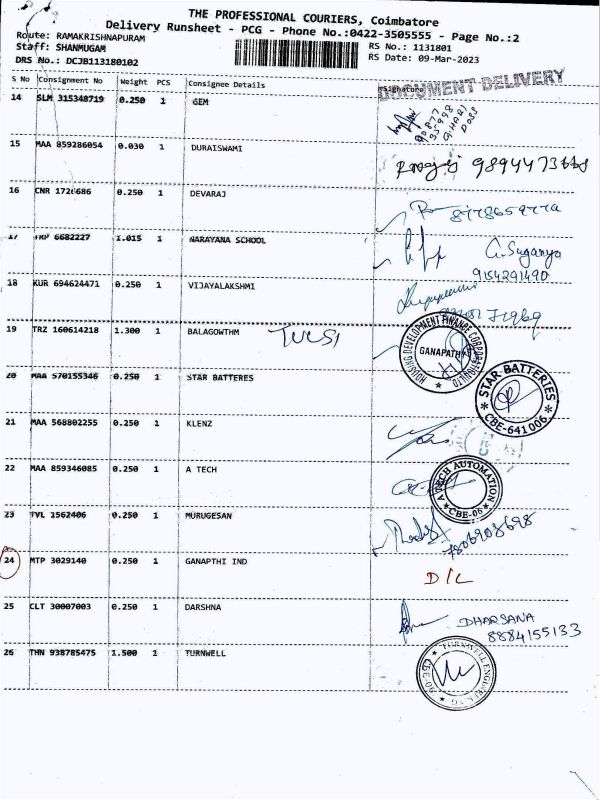 THE PROFESSIONAL COURIERS, Coimbatore
Delivery Runsheet - PCG - Phone No.:0422-3505555 - Page No.:2
Route: RAMAKRISHNAPURAM
RS No.: 1131801
Staff: SHANMUGAM
RS Date: 09-Mar-2023
DRS No.: DCJB113180102
S No Consignment No Weight PCS Consignee Details Signature
DOCUMENT DELIVERY
14 SLM 315348719 0.250 1 GEM
15 MAA 859286054 0.030 1 DURAISWAMI
16 CNR 1726686 0.250 1 DEVARAJ
17 6682227 1.015 1 NARAYANA SCHOOL G.Suganya
9154291490
18 KUR 694624471 0.250 1 VIJAYALAKSHMI
19 TRZ 160614218 1.300 1 BALAGOWTHM TULSI
HOUSING DEVELOPMENT FINANCE CORPORATION LTD
GANAPATHY
20 MAA 570155346 0.250 1 STAR BATTERES
STAR BATTERIES
CBE-641006
21 MAA 568802255 0.250 1 KLENZ
22 MAA 859346085 0.250 1 A TECH
A TECH AUTOMATION
CBE-06
23 TVL 1562406 0.250 1 MURUGESAN
7806903698
24 MTP 3029140 0.250 1 GANAPTHI IND D/L
25 CLT 30007003 0.250 1 DARSHNA DHARSANA
8884155133
26 THN 938785475 1.500 1 TURNWELL